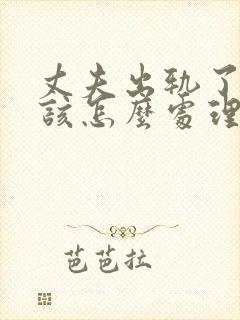 丈夫出轨了
该怎麽处理
芭芭拉